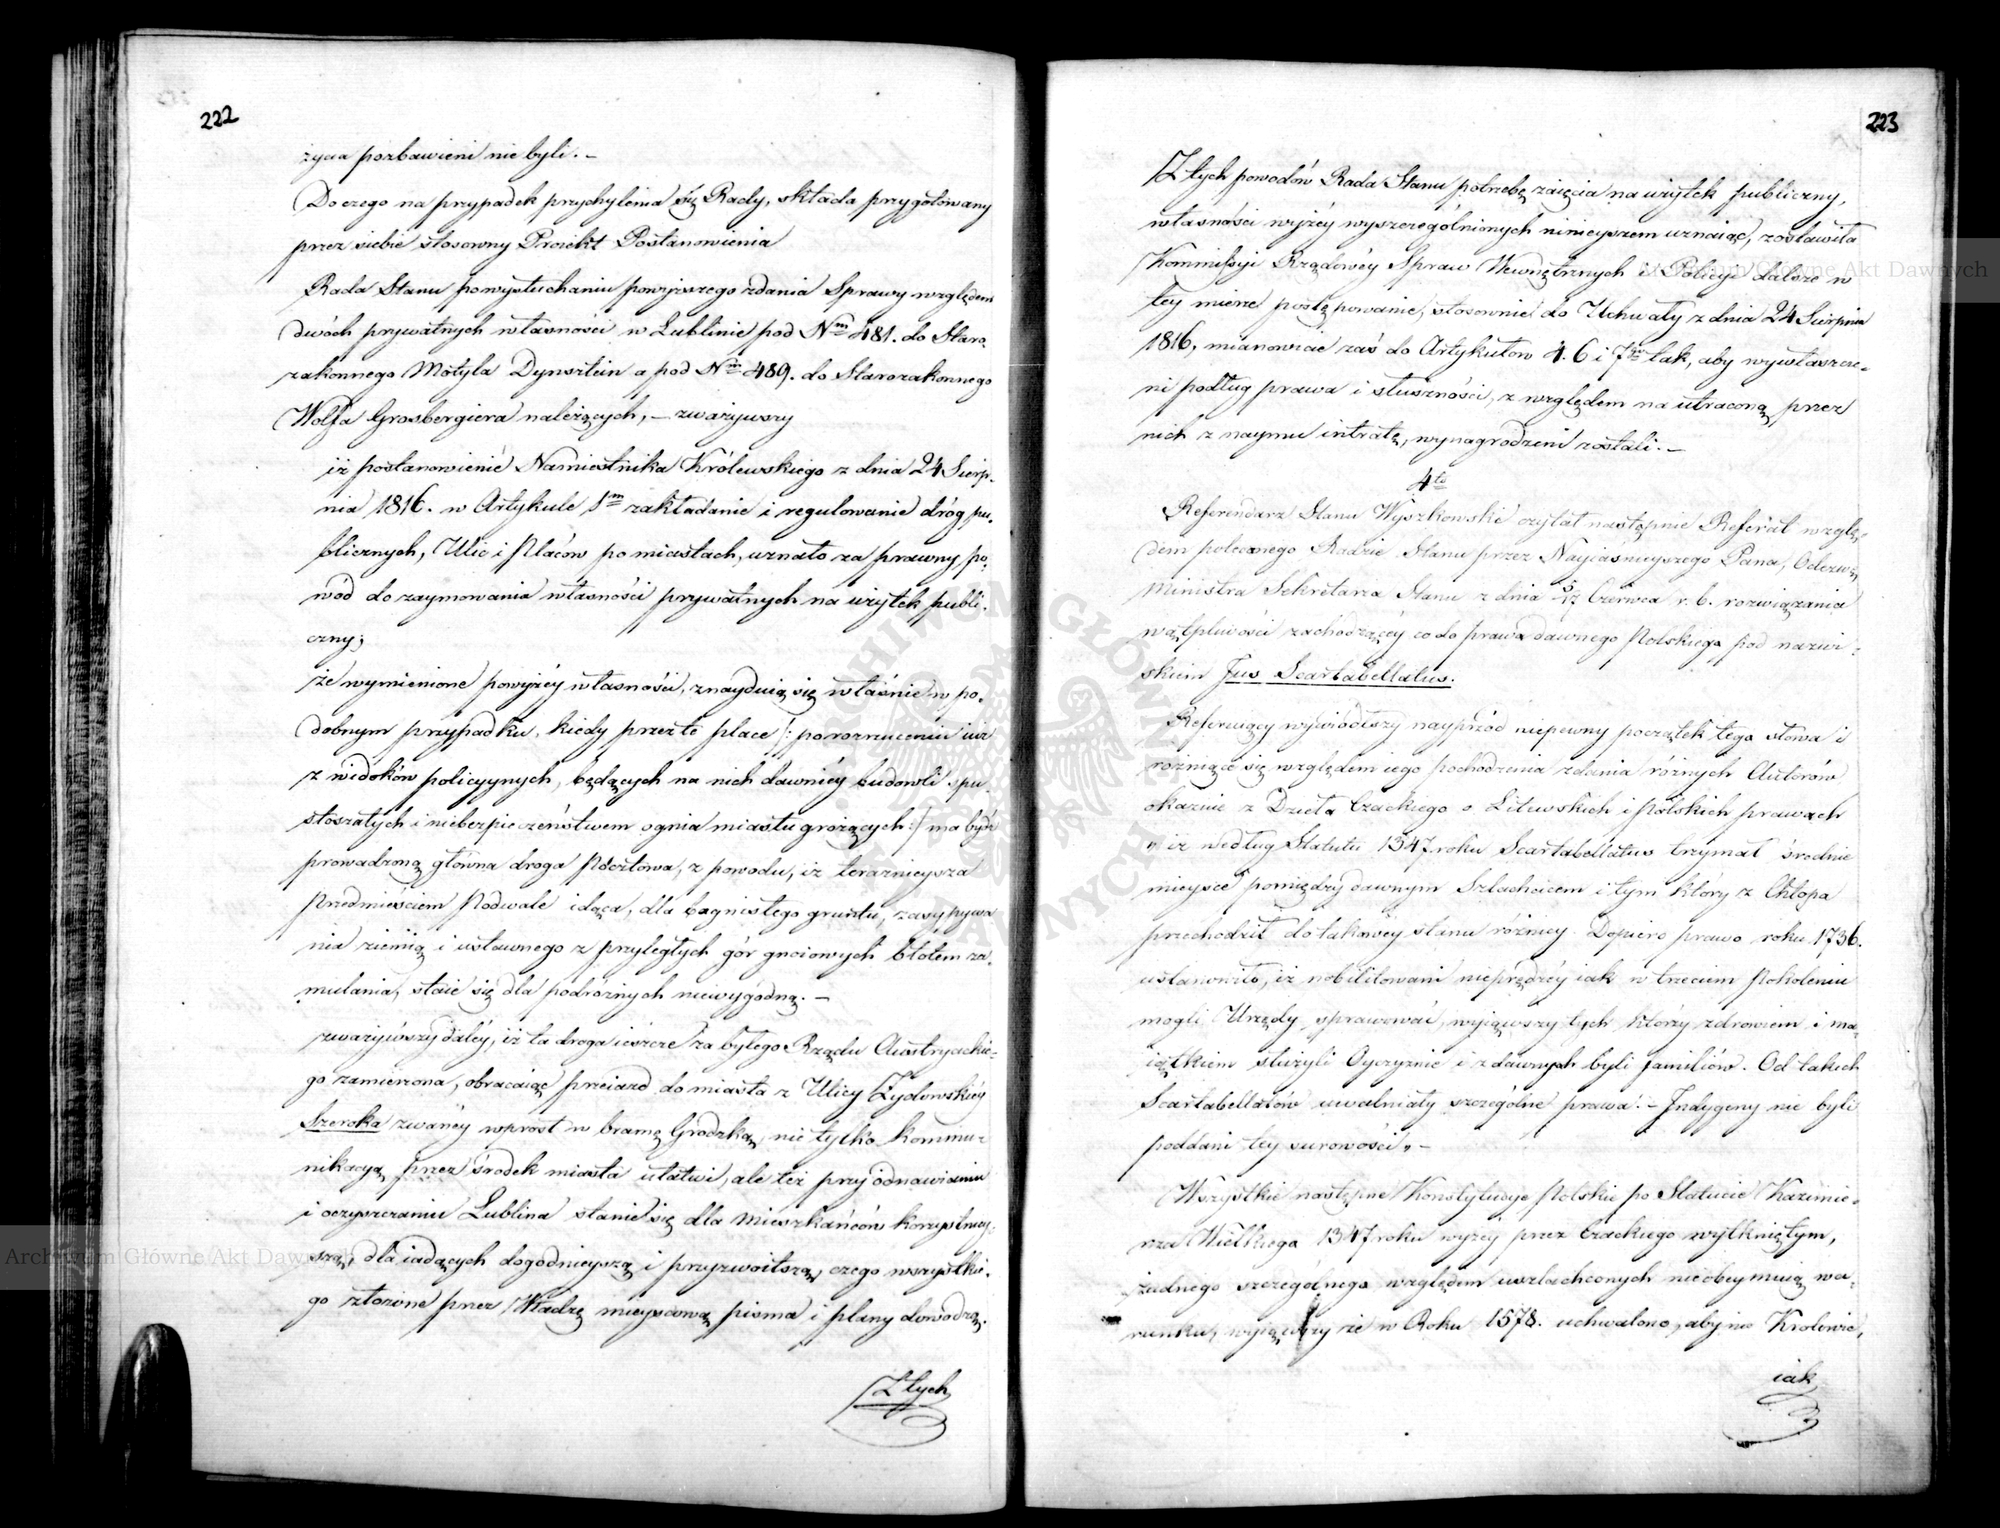 222
życia pozbawieni nie byli. –
Do czego na przypadek przychylenia się Rady, składa przygotowany
przez siebie stosowny Proiekt Postanowienia
Rada Stanu po wysłuchaniu powyższego zdania Sprawy względem
dwóch prywatnych własności w Lublinie pod Nm 481. do Staro-
zakonnego Motyla Dynsztein a pod Nm 489. do Starozakonnego
Wolfa Grosbergiera należących, – zważywszy
iż postanowienie Namiestnika Królewskiego z dnia 24 Sierp-
nia 1816. w Artykule 1m zakładanie i regulowanie dróg pu-
blicznych, Ulic i Placów po miastach, uznało za prawny po-
wód do zaymowania własności prywatnych na użytek publi-
czny;
że wymienione powyżéy własności, znayduią się właśnie w po-
dobnym przypadku, kiedy przez te place /: po rozrzuceniu iuż
z widoków policyynych, będących na nich dawniéy budowli spu-
stoszałych i niebezpieczeństwem ognia miastu grożących :/ ma bydź
prowadzoną główna droga Pocztowa, z powodu, iż teraznieysza
Przedmieściem Podwale idąca, dla bagnistego gruntu, zasypywa
nia ziemią i ustawnego z przyległych gór gnoiowych błotem za-
mulania, staie się dla podróżnych niewygodną. –
zważywszy daléy, iż ta droga ieszcze za byłego Rządu Austryackie-
go zamierzona, obracaiąc przeiazd do miasta z Ulicy Żydowskiéy
Szeroka zwanéy wprost w bramę Grodzką, nie tylko kommu-
nikacyą przez środek miasta ułatwi, ale też przy odnawianiu
i oczyszczaniu Lublina stanie się dla mieszkańców korzystniey-
szą, dla iadących dogodnieyszą i przyzwoitszą, czego wszystkie-
go złożone przez Władzę mieyscową pisma i plany dowodzą.
Z tych
223
Z tych powodów Rada Stanu potrzebę zaięcia na użytek publiczny,
własności wyżéy wyszczególnionych ninieyszem uznaiąc, zostawiła
Kommissyi Rządowéy Spraw Wewnętrznych i Policyi dalsze w
tey mierze postępowanie, stosownie do Uchwały z dnia 24 Sierpnia
1816, mianowicie zaś do Artykułów 4. 6 i 7go tak, aby wywłaszcze-
ni podług prawa i słuszności, z względem na utraconą przez
nich z naymu intratę, wynagrodzeni zostali. –
4to
Referendarz Stanu Wyszkowski czytał następnie Referat wzglę-
dem poleconego Radzie Stanu przez Nayiasnieyszego Pana, Odezwą
Ministra Sekretarza Stanu z dnia 5/17 Czerwca r. b. rozwiązania
wątpliwości zachodzącéy co do prawa dawnego Polskiego pod nazwi-
skiem Jus Scartabellatus.
Referuiący wywiódłszy nayprzód niepewny początek tego słowa i
różniące się względem iego pochodzenia zdania różnych Autorów
okazuie z Dzieła Czackiego o Litewskich i Polskich prawach
„iż według Statutu 1347 roku Scartabellatus trzymał średnie
mieysce pomiędzy dawnym Szlachcicem i tym który z Chłopa
przechodził do takowéy stanu różnicy. Dopiero prawo roku 1736.
ustanowiło, iż nobilitowani nieprędzéy iak w trzecim Pokoleniu
mogli Urzędy sprawować, wyiąwszy tych którzy zdrowiem i ma-
iątkiem służyli Oyczyznie i z dawnych byli familiów. Od takich
Scartabellatów uwalniały szczególne prawa. – Indygeny nie byli
poddani tey surowości„ –
Wszystkie następne Konstytucye Polskie po Statucie Kazimie-
rza Wielkiego 1347 roku wyżéy przez Czackiego wytkniętym,
żadnego szczególnego względem uszlachconych nieobeymuią wa-
runku, wyiąwszy że w Roku 1578. uchwalono, aby no Krolowie,
iak